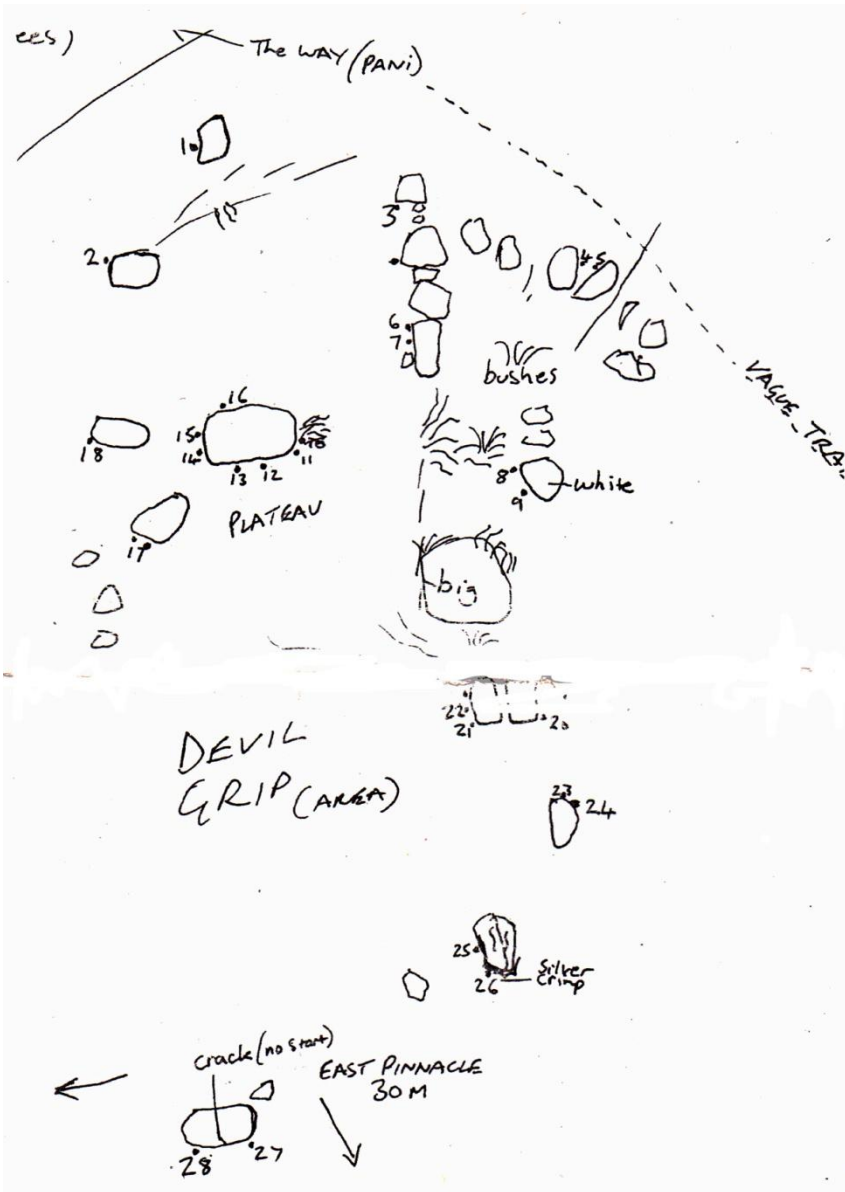 ees)
The WAY (PANI)
1
2
3
4 5
6
7
bushes
VAGUE TRA
16
15
14
13
12
11
10
18
8
9
white
PLATEAU
17
big
22
21
20
DEVIL
GRIP (AREA)
23
24
25
26
Silver
Crimp
crack (no start)
EAST PINNACLE
30 M
28
27